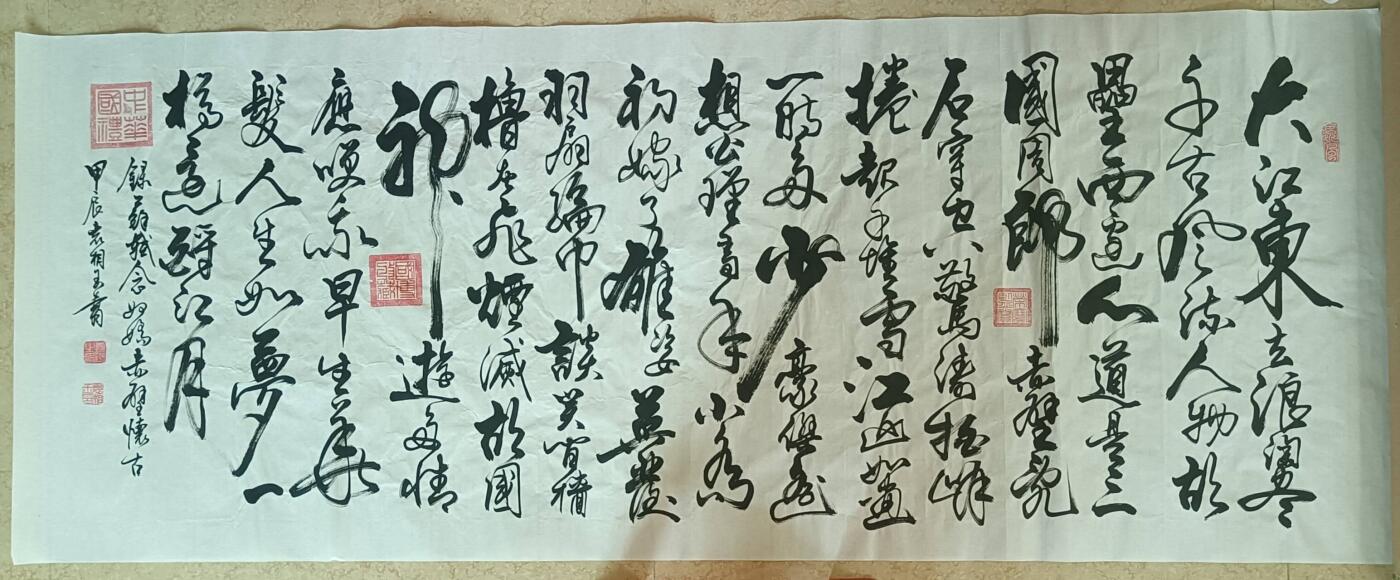 大江東去浪淘盡
千古風流人物故
壘西邊人道是三
國周郎赤壁亂
石穿空驚濤拍岸
捲起千堆雪江山如畫
一時多少豪傑遙
想公瑾當年小喬
初嫁了雄姿英發
羽扇綸巾談笑間檣
櫓灰飛煙滅故國
神遊多情
應笑我早生華
髮人生如夢一
樽還酹江月
錄蘇軾念奴嬌赤壁懷古
甲辰袁相玉書
中華國禮